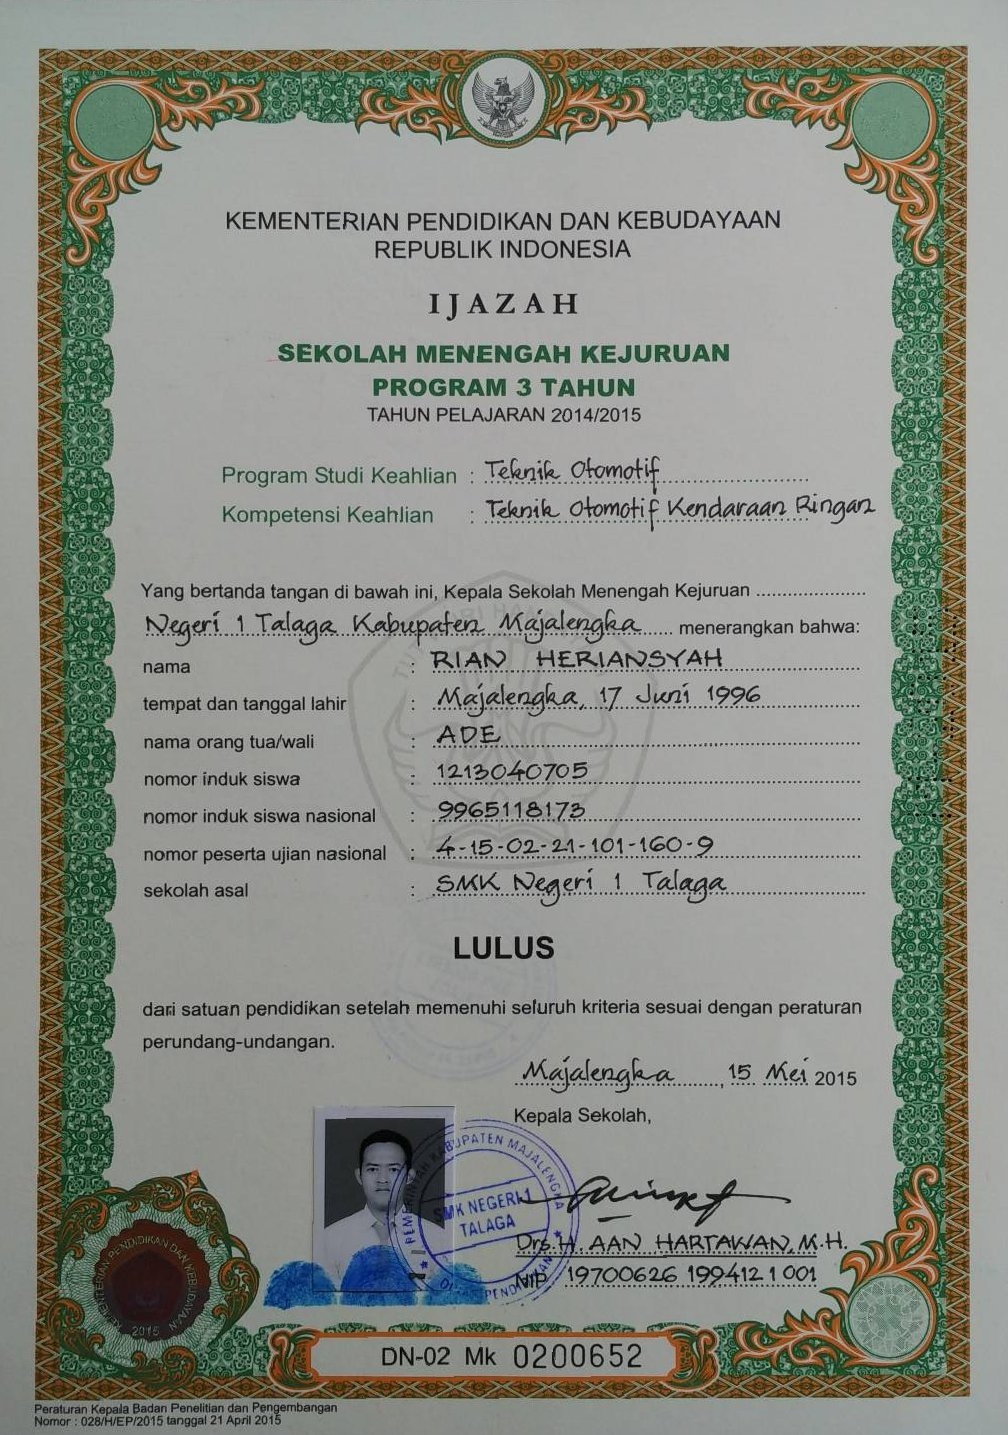 KEMENTERIAN PENDIDIKAN DAN KEBUDAYAAN
REPUBLIK INDONESIA
IJAZAH
SEKOLAH MENENGAH KEJURUAN
PROGRAM 3 TAHUN
TAHUN PELAJARAN 2014/2015
Program Studi Keahlian : Teknik Otomotif
Kompetensi Keahlian : Teknik Otomotif Kendaraan Ringan
Yang bertanda tangan di bawah ini, Kepala Sekolah Menengah Kejuruan
Negeri 1 Talaga Kabupaten Majalengka menerangkan bahwa:
nama : RIAN HERIANSYAH
tempat dan tanggal lahir : Majalengka, 17 Juni 1996
nama orang tua/wali : ADE
nomor induk siswa : 1213040705
nomor induk siswa nasional : 9965118173
nomor peserta ujian nasional : 4-15-02-21-101-160-9
sekolah asal : SMK Negeri 1 Talaga
LULUS
dari satuan pendidikan setelah memenuhi seluruh kriteria sesuai dengan peraturan
perundang-undangan.
Majalengka, 15 Mei 2015
Kepala Sekolah,
PEMERINTAH KABUPATEN MAJALENGKA
SMK NEGERI 1
TALAGA
Drs. H. AAN HARTAWAN, M.H.
NIP 19700626 199412 1 001
KEMENTERIAN PENDIDIKAN DAN KEBUDAYAAN
2015
DN-02 Mk 0200652
Peraturan Kepala Badan Penelitian dan Pengembangan
Nomor : 028/H/EP/2015 tanggal 21 April 2015